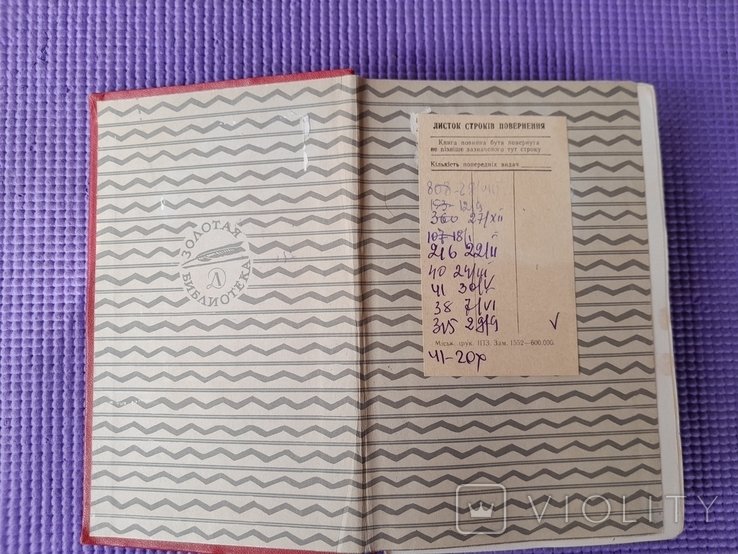 ЗОЛОТАЯ
БИБЛИОТЕКА
Д
ЛИСТОК СТРОКІВ ПОВЕРНЕННЯ
Книга повинна бути повернута
не пізніше зазначеного тут строку
Кількість попередніх видач
808-29/VIII
153-12/9
360 27/XII
107-18/I
216 22/II
40 24/III
41 30/V
38 7/VI
315 29/9
Міськ. друк. ПТЗ. Зам. 1552—600.000.
41-20х
VIOLITY